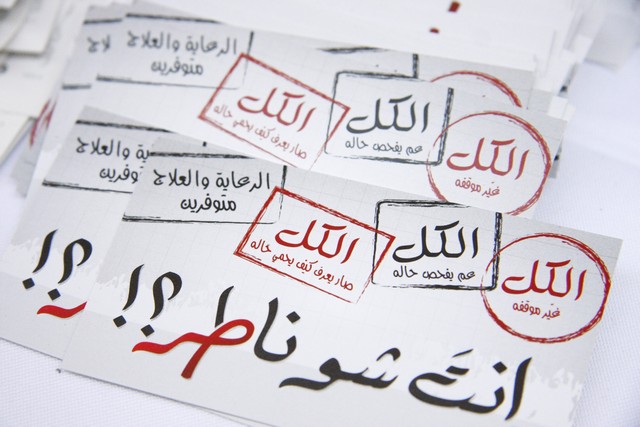 الرعاية والعلاج
متوفرين
الكل
صار يعرف كيف يحمي حاله
الكل
عم يفحص حاله
الكل
غيّر موقفه
الرعاية والعلاج
متوفرين
الكل
صار يعرف كيف يحمي حاله
الكل
عم يفحص حاله
الكل
غيّر موقفه
انتَ شو ناطر؟!